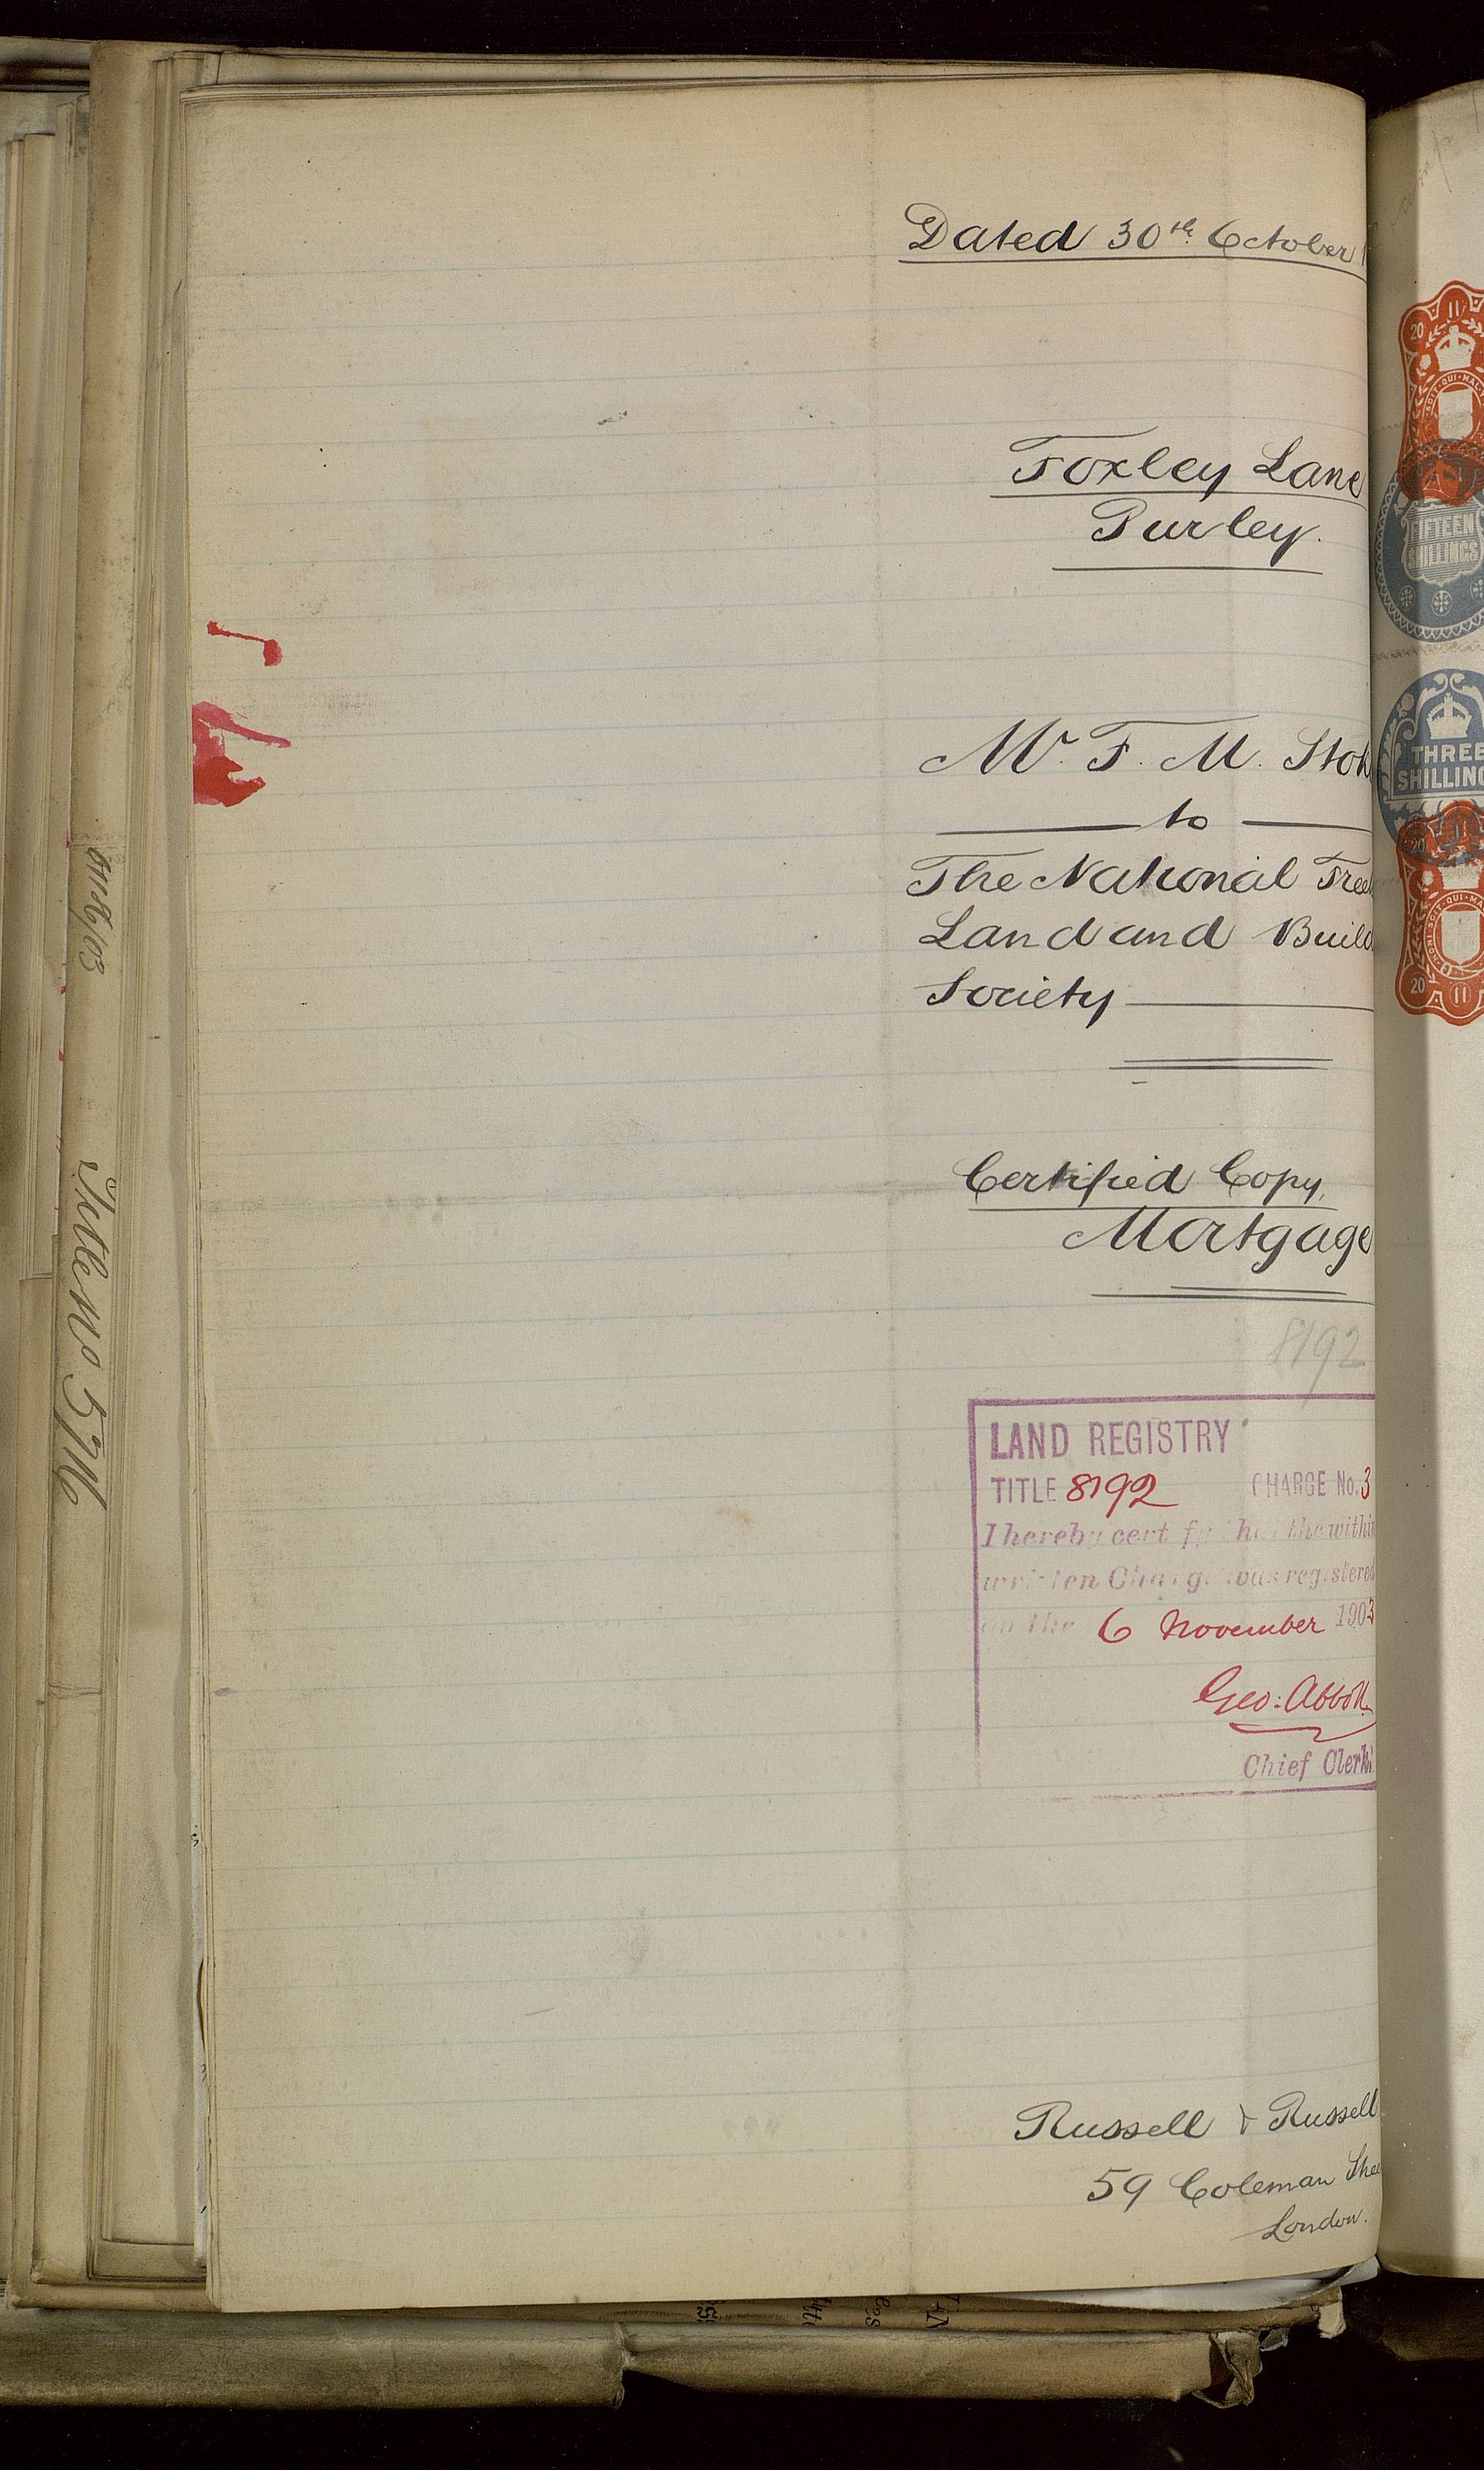 Dated 30th October 1
Foxley Lane
Purley.
Mr. F. M. Stoh
to
The National Free
Land and Build
Society
Certified Copy
Mortgage
8192
LAND REGISTRY
TITLE 8192 CHARGE No. 3
I hereby certify that the within
written Charge was registered
on the 6 November 1903
Geo: Abbott
Chief Clerk
Russell & Russell
59 Coleman Stree
London.
Title No 5716
20 11
SOIT·QUI·MAL·Y
FIFTEEN
SHILLINGS
THREE
SHILLING
20
HONI·SOIT·QUI·MA
20 11